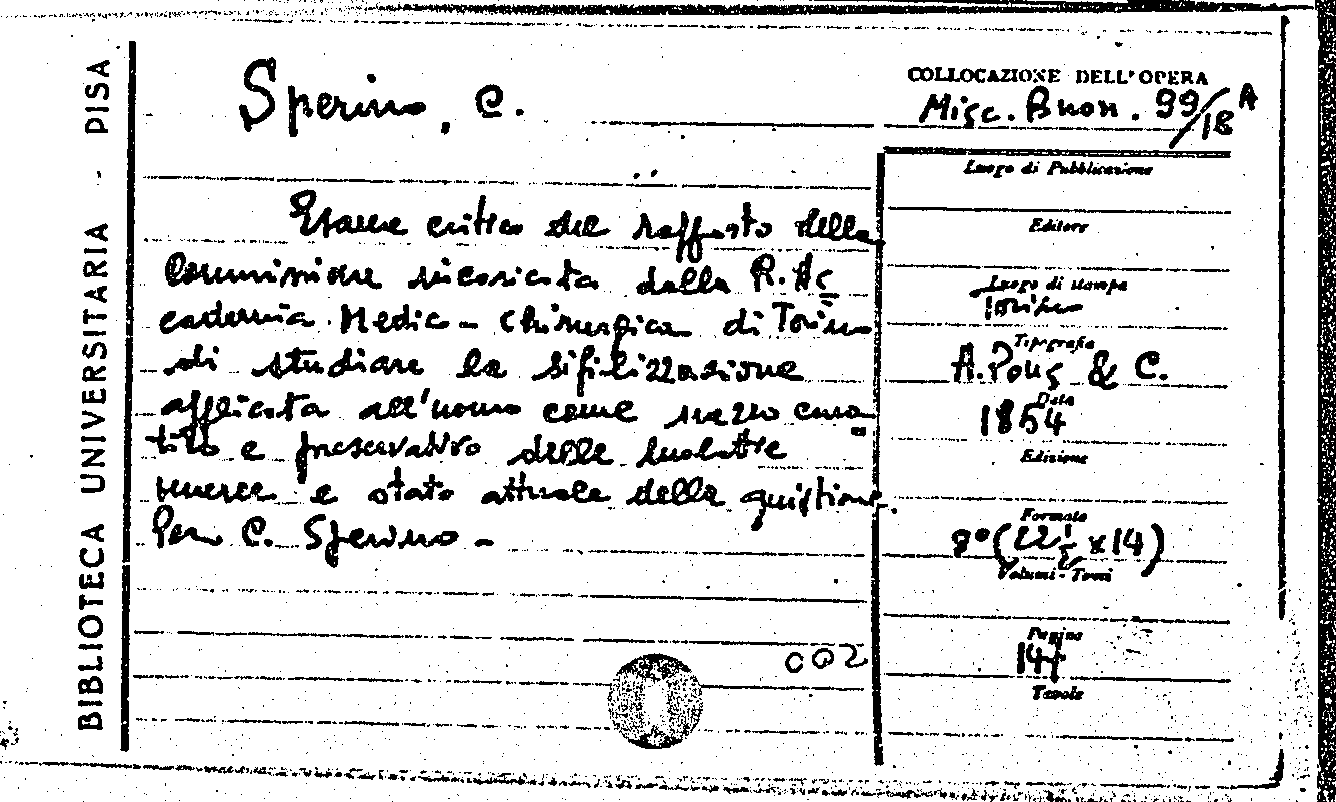 BIBLIOTECA UNIVERSITARIA - PISA
Sperino, C.
Esame critico del rapporto della
Commissione incaricata dalla R. Ac
cademia Medico-Chirurgica di Torino
di studiare la sifilizzazione
applicata all'uomo come mezzo cura
tivo e preservativo delle malattie
veneree e stato attuale della quistione.
Per C. Sperino -
002
COLLOCAZIONE DELL'OPERA
Misc. Buon. 99/18 A
Luogo di Pubblicazione
Editore
Luogo di stampa
Torino
Tipografia
A. Pons & C.
Data
1854
Edizione
Formato
8° (22 ½ x 14)
Volumi - Tomi
Pagine
147
Tavole